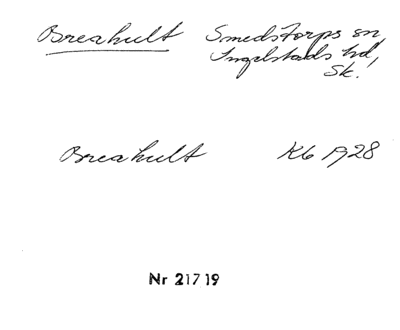 Breahult Smedstorps sn,
Ingelstads hd,
Sk.
Breahult Kb 1928
Nr 21719